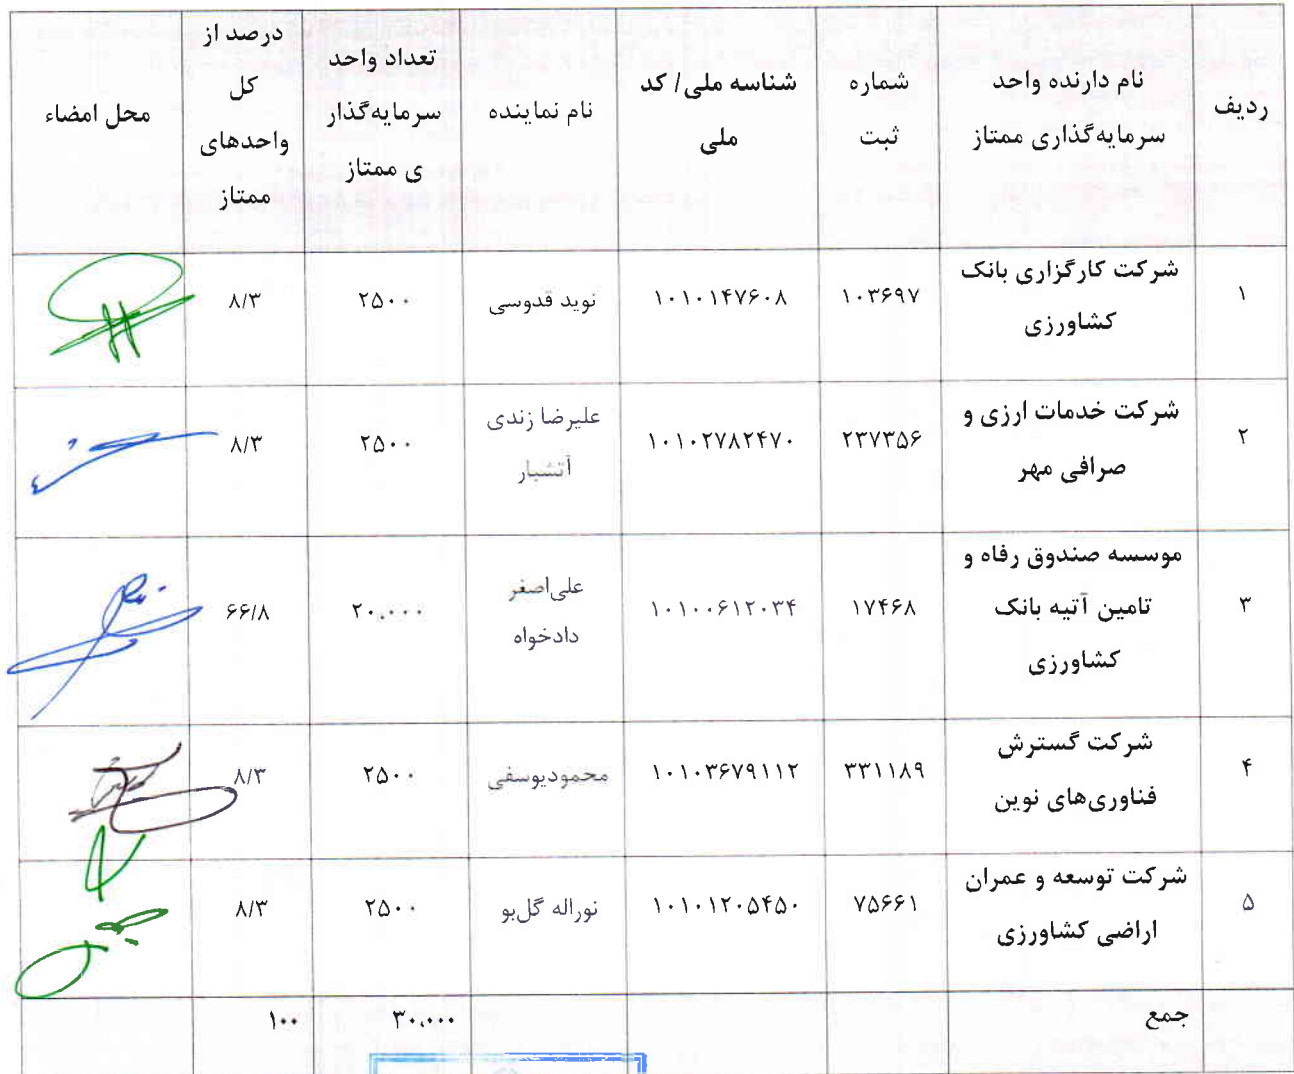 ردیف
نام دارنده واحد
سرمایه‌گذاری ممتاز
شماره
ثبت
شناسه ملی/ کد
ملی
نام نماینده
تعداد واحد
سرمایه‌گذار
ی ممتاز
درصد از
کل
واحدهای
ممتاز
محل امضاء
۱
شرکت کارگزاری بانک
کشاورزی
۱۰۳۶۹۷
۱۰۱۰۱۴۷۶۰۸
نوید قدوسی
۲۵۰۰
۸/۳
۲
شرکت خدمات ارزی و
صرافی مهر
۲۳۷۳۵۶
۱۰۱۰۲۷۸۲۴۷۰
علیرضا زندی
آتشبار
۲۵۰۰
۸/۳
۳
موسسه صندوق رفاه و
تامین آتیه بانک
کشاورزی
۱۷۴۶۸
۱۰۱۰۰۶۱۲۰۳۴
علی‌اصغر
دادخواه
۲۰.۰۰۰
۶۶/۸
۴
شرکت گسترش
فناوری‌های نوین
۳۳۱۱۸۹
۱۰۱۰۳۶۷۹۱۱۲
محمودیوسفی
۲۵۰۰
۸/۳
۵
شرکت توسعه و عمران
اراضی کشاورزی
۷۵۶۶۱
۱۰۱۰۱۲۰۵۴۵۰
نوراله گل‌بو
۲۵۰۰
۸/۳
جمع
۳۰.۰۰۰
۱۰۰